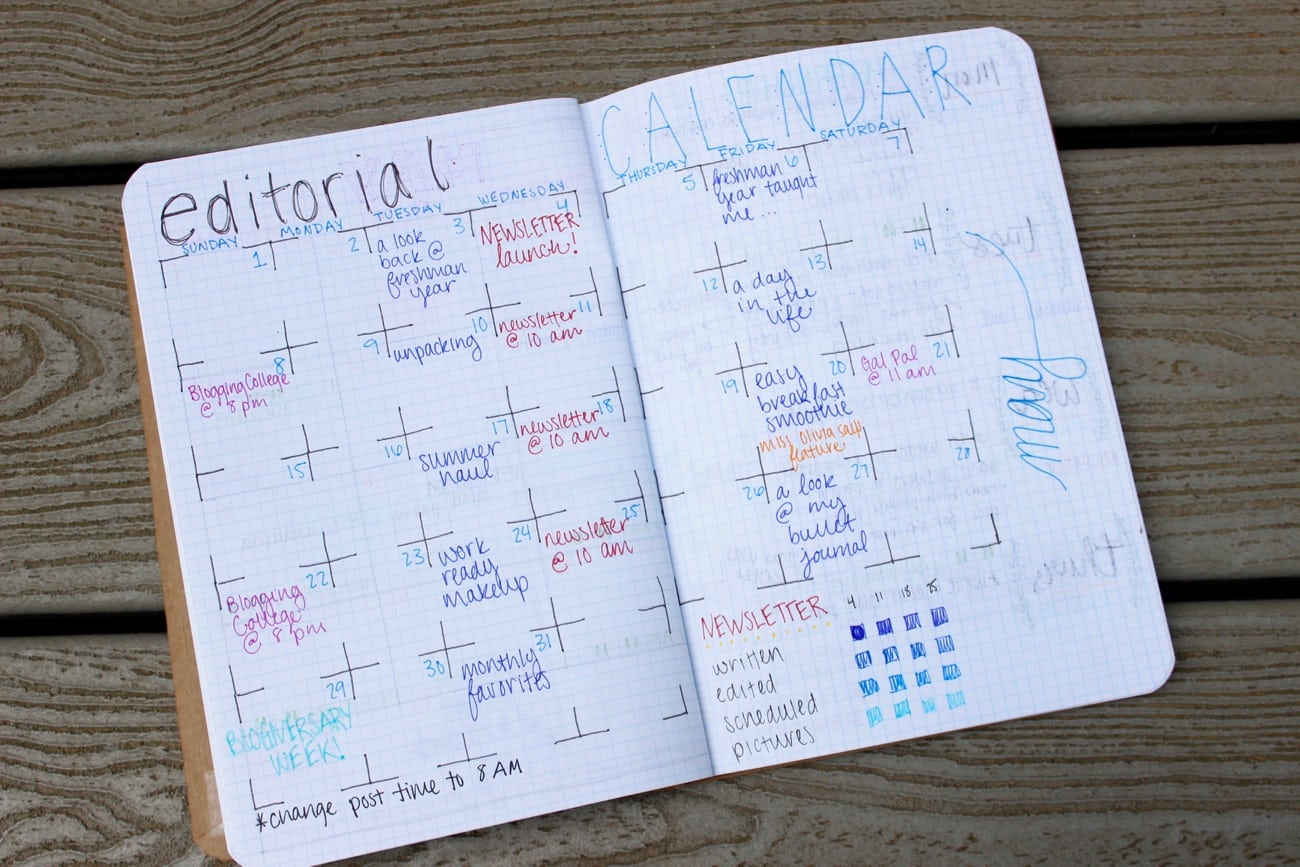 editorial
SUNDAY MONDAY TUESDAY WEDNESDAY
1 2 3 4
a look
back @
freshman
year
NEWSLETTER
launch!
8 9 10 11
unpacking
newsletter
@ 10 am
Blogging College
@ 8 pm
15 16 17 18
summer
haul
newsletter
@ 10 am
22 23 24 25
work
ready
makeup
newsletter
@ 10 am
Blogging
College
@ 8 pm
29 30 31
monthly
favorites
BLOGIVERSARY
WEEK!
*change post time to 8 AM
CALENDAR
THURSDAY FRIDAY SATURDAY
5 6 7
freshman
year taught
me...
12 13 14
a day
in the
life
19 20 21
easy
breakfast
smoothie
Gal Pal
@ 11 am
miss olivia says
feature
26 27 28
a look
@ my
bullet
journal
may
NEWSLETTER 4 11 18 25
written
edited
scheduled
pictures